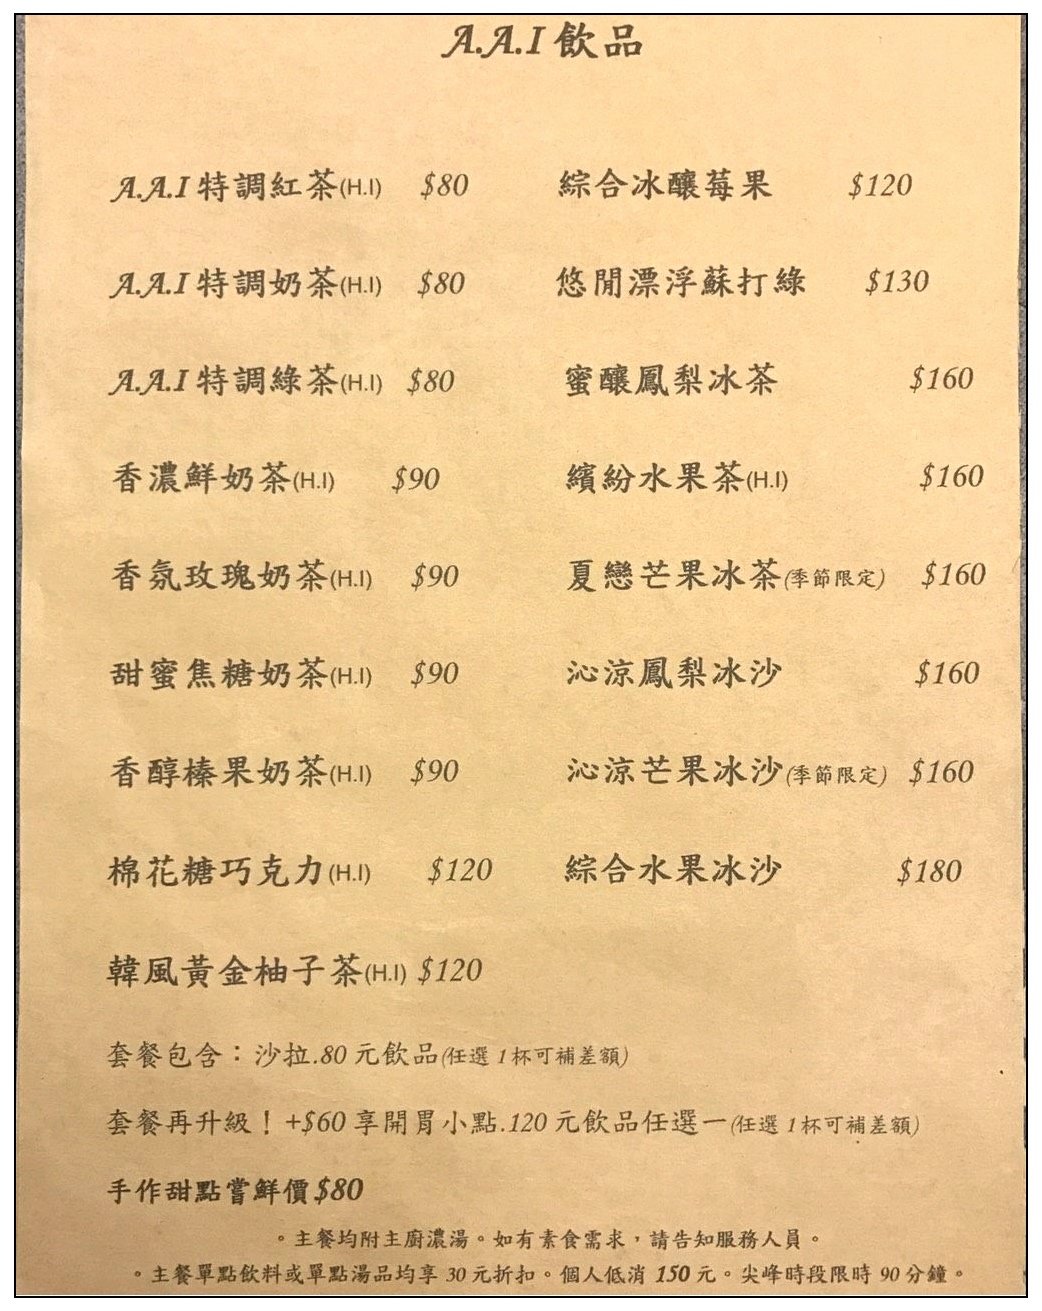 A.A.I 飲品
A.A.I 特調紅茶(H.I) $80 綜合冰釀莓果 $120
A.A.I 特調奶茶(H.I) $80 悠閒漂浮蘇打綠 $130
A.A.I 特調綠茶(H.I) $80 蜜釀鳳梨冰茶 $160
香濃鮮奶茶(H.I) $90 繽紛水果茶(H.I) $160
香氛玫瑰奶茶(H.I) $90 夏戀芒果冰茶(季節限定) $160
甜蜜焦糖奶茶(H.I) $90 沁涼鳳梨冰沙 $160
香醇榛果奶茶(H.I) $90 沁涼芒果冰沙(季節限定) $160
棉花糖巧克力(H.I) $120 綜合水果冰沙 $180
韓風黃金柚子茶(H.I) $120
套餐包含：沙拉.80 元飲品(任選 1 杯可補差額)
套餐再升級！+$60 享開胃小點.120 元飲品任選一(任選 1 杯可補差額)
手作甜點嘗鮮價$80
。主餐均附主廚濃湯。如有素食需求，請告知服務人員。
。主餐單點飲料或單點湯品均享 30 元折扣。個人低消 150 元。尖峰時段限時 90 分鐘。